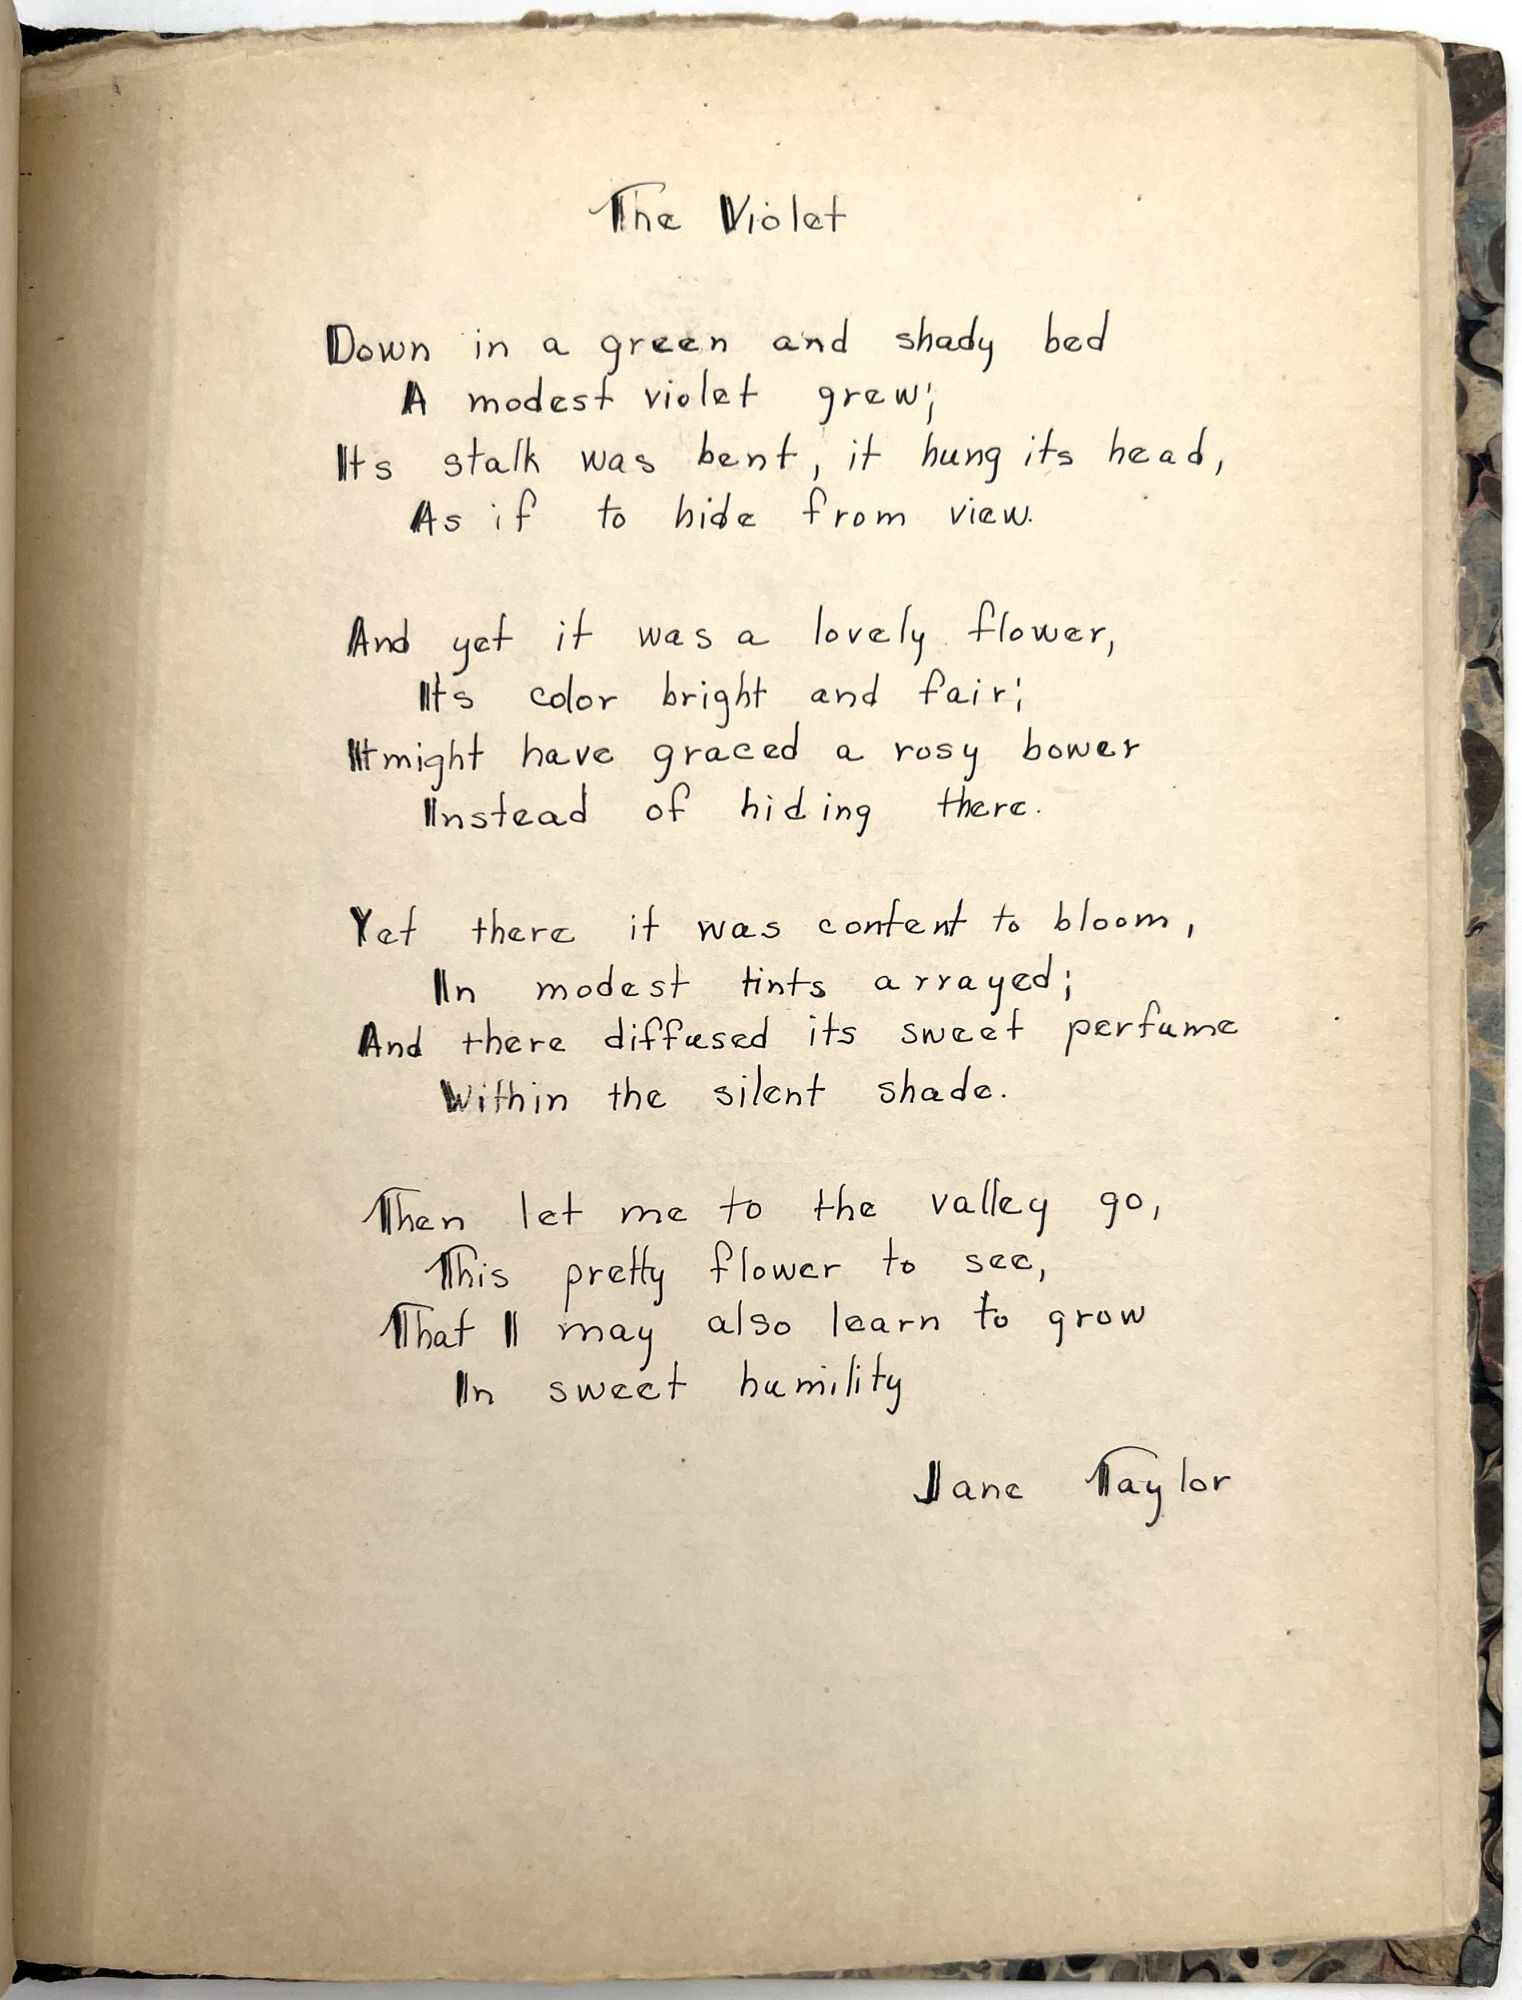 The Violet
Down in a green and shady bed
A modest violet grew;
Its stalk was bent, it hung its head,
As if to hide from view.
And yet it was a lovely flower,
It's color bright and fair;
It might have graced a rosy bower
Instead of hiding there.
Yet there it was content to bloom,
In modest tints arrayed;
And there diffused its sweet perfume
Within the silent shade.
Then let me to the valley go,
This pretty flower to see,
That I may also learn to grow
In sweet humility
Jane Taylor